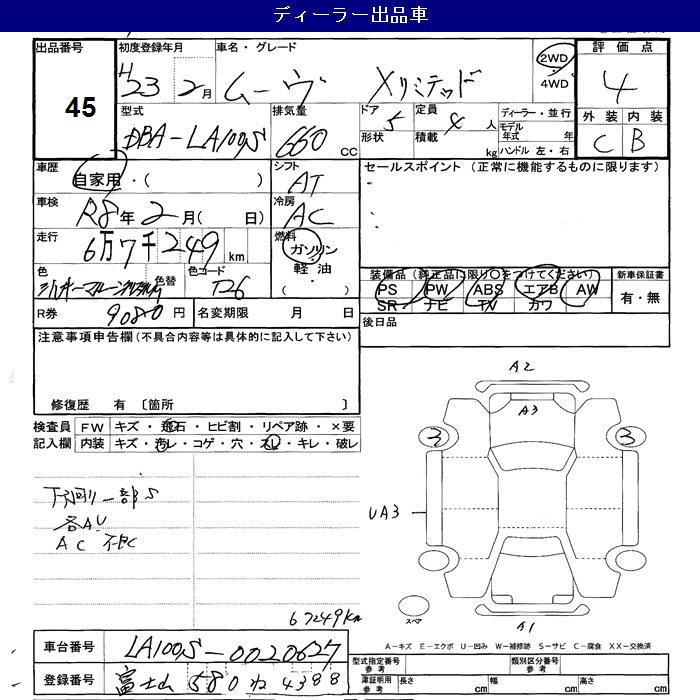 ディーラー出品車
出品番号
45
初度登録年月
H23年2月
車名・グレード
ムーヴ Xリミテッド
2WD
4WD
評価点
4
外装 内装
C B
型式
DBA-LA100S
排気量
660 CC
ドア 5
形状
定員 4 人
積載 kg
ディーラー・並行
モデル年式 年
ハンドル 左・右
車歴
自家用・( )
シフト
AT
セールスポイント (正常に機能するものに限ります)
車検
R8年2月( 日)
冷房
AC
走行
6万7千249km
燃料
ガソリン
軽油
色
色替
色コード
T26
装備品(純正品に限り○をつけてください)
PS PW ABS エアB AW
SR ナビ TV カワ
新車保証書
有・無
R券 9080円
名変期限 月 日
後日品
注意事項申告欄(不具合内容等は具体的に記入して下さい)
修復歴 有 〔箇所 〕
検査員 FW キズ・飛石・ヒビ割・リペア跡・×要
記入欄 内装 キズ・汚レ・コゲ・穴・スレ・キレ・破レ
下廻り一部S
各AU
AC 不良
67249km
A2
A3
3 3
UA3
スペア
A1
A-キズ E-エクボ U-凹み W-補修跡 S-サビ C-腐食 XX-交換済
車台番号 LA100S-0020627
登録番号 富士山 580 ね 4388
型式指定番号 参考
類別区分番号 参考
車庫証明用 参考 長さ cm 幅 cm 高さ cm